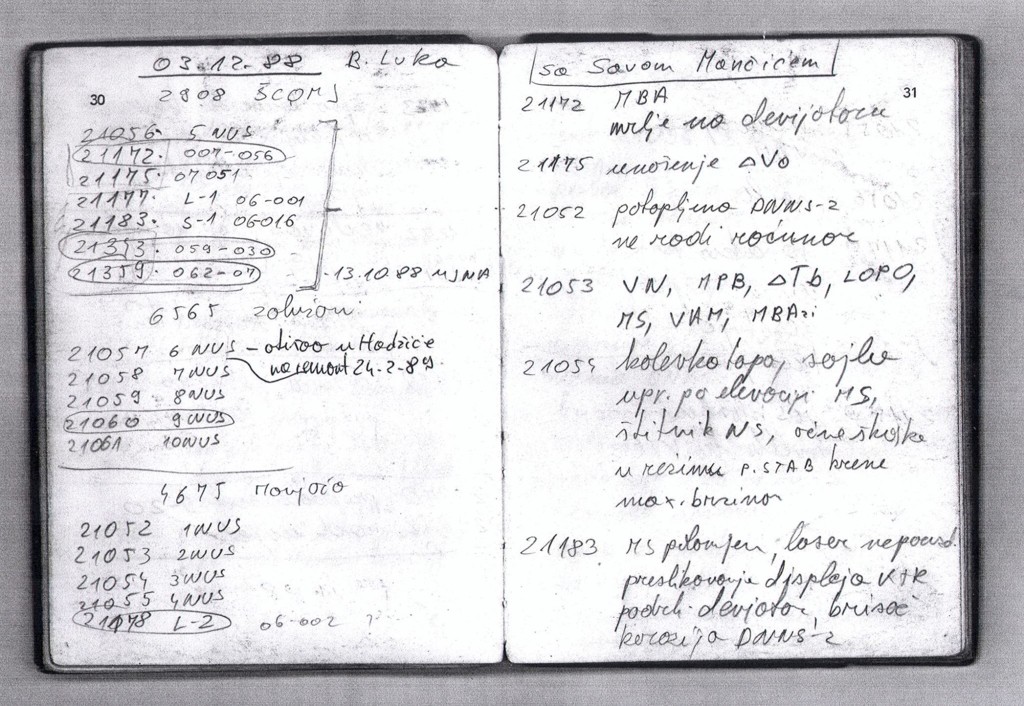 03.12.88 B. Luka
30
2908 ŠCOMJ
21056. 5 NUS
21172. 007-056
21175. 07051
21177. L-1 06-001
21183. S-1 06016
21353. 059-030
21359. 062-07
13.10.88 MJNA
6565
21057 6 NUS – otišao u Hadžiće
na remont 24-2-89.
21058 7NUS
21059 8NUS
21060 9NUS
2106A 10NUS
4675
21052 1NUS
21053 2NUS
21054 3NUS
21055 4NUS
21178 L-2 06-002 ?
sa Savom Mančićem
31
21172 MBA
mrlje na devijatoru
21175 unošenje ΔVo
21052 potopljena DNNS-2
ne radi računar
21053 VN, MPB, ΔTb, LOPO,
MS, VAM, MBA
21054 kolevka topa, sajle
upr. po elevaciji MS,
štitnik NS, očne školjke
u režimu P.STAB krene
max. brzinom
21183 MS polomljen, laser nepouzd.
preslikavanje displeja K+R
podrh. devijator, brisač
korozija DNNS-2